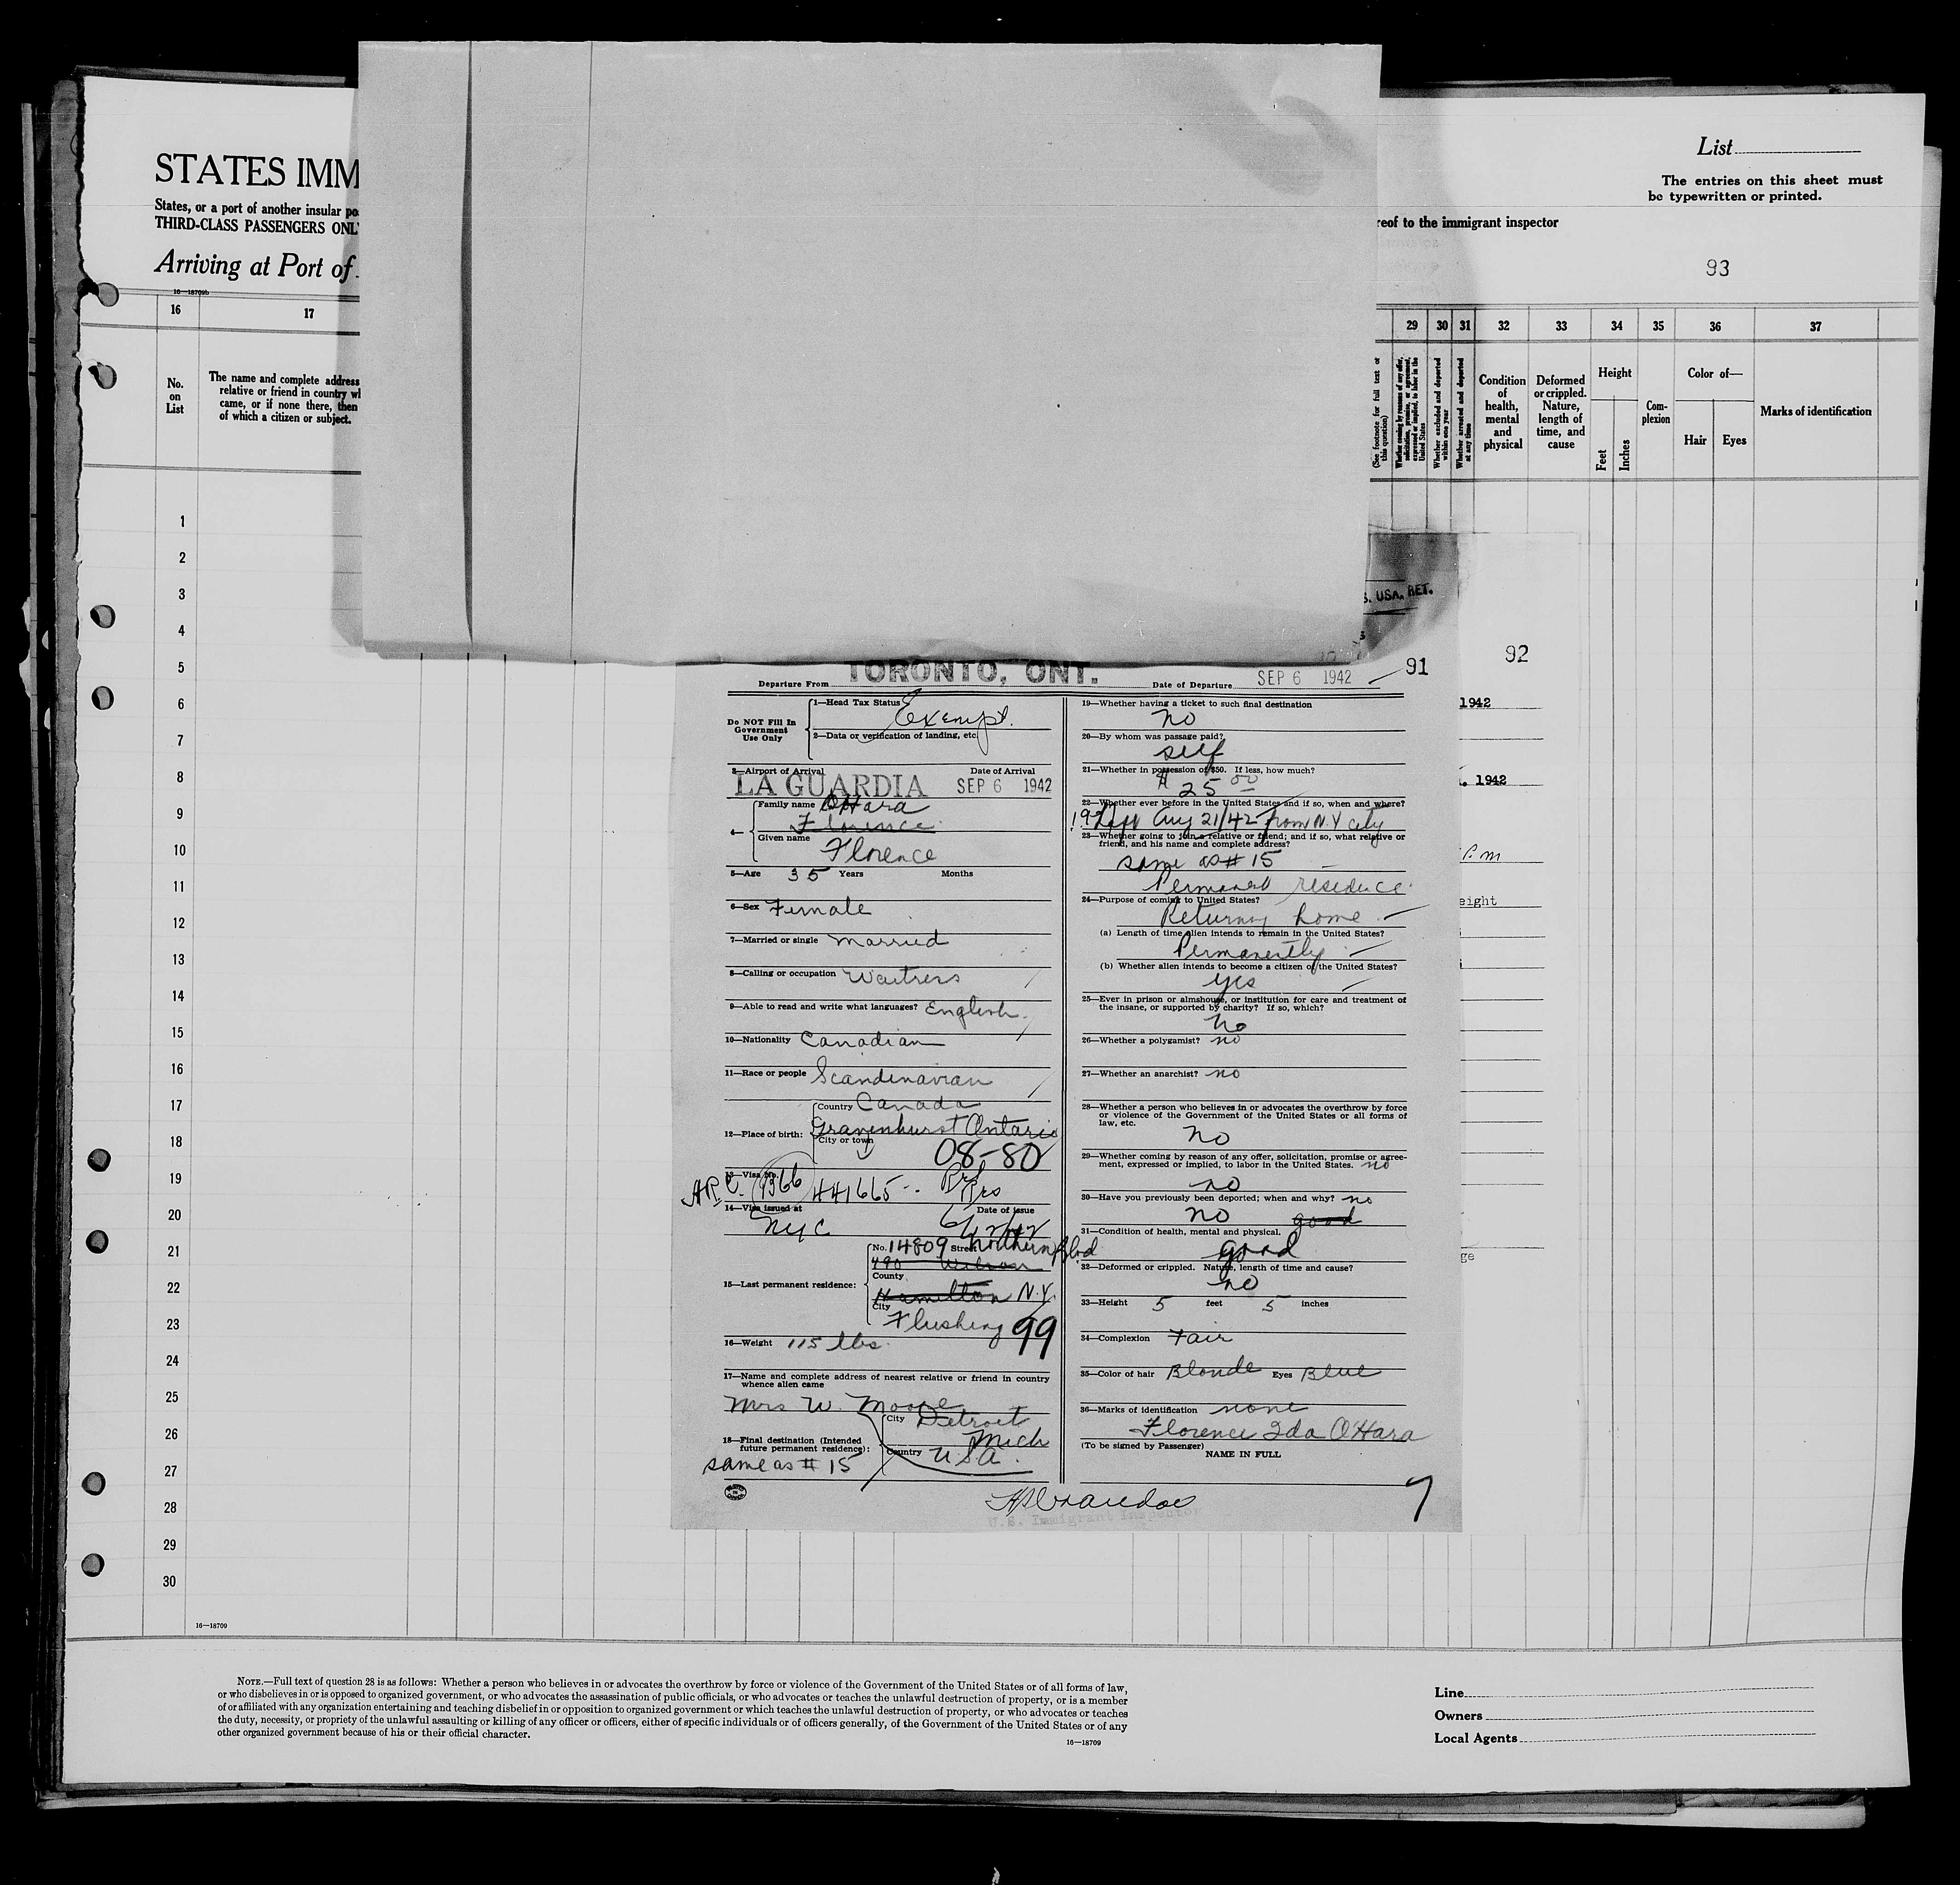 STATES IMM
States, or a port of another insular po
THIRD-CLASS PASSENGERS ONL
Arriving at Port of
16—18709b
List
The entries on this sheet must
be typewritten or printed.
reof to the immigrant inspector
93
16 17
29 30 31 32 33 34 35 36 37
No.
on
List
The name and complete address
relative or friend in country wh
came, or if none there, then
of which a citizen or subject.
(See footnote for full text of
this question)
Whether coming by reasons of any offer,
solicitation, promise, or agreement,
expressed or implied, to labor in the
United States
Whether excluded and deported
within one year
Whether arrested and deported
at any time
Condition
of
health,
mental
and
physical
Deformed
or crippled.
Nature,
length of
time, and
cause
Height
Feet
Inches
Com-
plexion
Color of—
Hair
Eyes
Marks of identification
1
2
3
4
5
6
7
8
9
10
11
12
13
14
15
16
17
18
19
20
21
22
23
24
25
26
27
28
29
30
S. USA. RET.
92
91
1942
. 1942
P.m
eight
ge
Departure From TORONTO, ONT. Date of Departure SEP 6 1942
Do NOT Fill In
Government
Use Only
1—Head Tax Status Exempt.
2—Data or verification of landing, etc.
3—Airport of Arrival Date of Arrival
LA GUARDIA SEP 6 1942
4— Family name O'Hara
Florence
Given name
Florence
5—Age 35 Years Months
6—Sex Female
7—Married or single Married
8—Calling or occupation Waitress
9—Able to read and write what languages? English
10—Nationality Canadian
11—Race or people Scandinavian
12—Place of birth: Country Canada
Gravenhurst Ontario
City or town
08-80
13—Visa No.
A.R.C. 1366 441665
14—Visa issued at Date of issue
NYC
15—Last permanent residence: No. 14809 Street Northern Blvd
490 Wilson
County
Hamilton N.Y.
City
Flushing 99
16—Weight 115 lbs.
17—Name and complete address of nearest relative or friend in country
whence alien came
Mrs W. Moore
18—Final destination (Intended
future permanent residence):
City Detroit
Mich
Country USA.
same as # 15
19—Whether having a ticket to such final destination
no
20—By whom was passage paid?
self
21—Whether in possession of $50. If less, how much?
$ 25 00
22—Whether ever before in the United States and if so, when and where?
Left Aug 21/42 from N.Y city
23—Whether going to join a relative or friend; and if so, what relative or
friend, and his name and complete address?
same as # 15
Permanent residence
24—Purpose of coming to United States?
Returning home
(a) Length of time alien intends to remain in the United States?
Permanently
(b) Whether alien intends to become a citizen of the United States?
yes
25—Ever in prison or almshouse, or institution for care and treatment of
the insane, or supported by charity? If so, which?
no
26—Whether a polygamist? no
27—Whether an anarchist? no
28—Whether a person who believes in or advocates the overthrow by force
or violence of the Government of the United States or all forms of
law, etc.
no
29—Whether coming by reason of any offer, solicitation, promise or agree-
ment, expressed or implied, to labor in the United States. no
no
30—Have you previously been deported; when and why? no
no good
31—Condition of health, mental and physical.
good
32—Deformed or crippled. Nature, length of time and cause?
no
33—Height 5 feet 5 inches
34—Complexion Fair
35—Color of hair Blonde Eyes Blue
36—Marks of identification none
Florence Ida O'Hara
(To be signed by Passenger)
NAME IN FULL
U.S. Immigrant Inspector
16—18709
NOTE.—Full text of question 28 is as follows: Whether a person who believes in or advocates the overthrow by force or violence of the Government of the United States or of all forms of law,
or who disbelieves in or is opposed to organized government, or who advocates the assassination of public officials, or who advocates or teaches the unlawful destruction of property, or is a member
of or affiliated with any organization entertaining and teaching disbelief in or opposition to organized government or which teaches the unlawful destruction of property, or who advocates or teaches
the duty, necessity, or propriety of the unlawful assaulting or killing of any officer or officers, either of specific individuals or of officers generally, of the Government of the United States or of any
other organized government because of his or their official character.
16—18709
Line
Owners
Local Agents